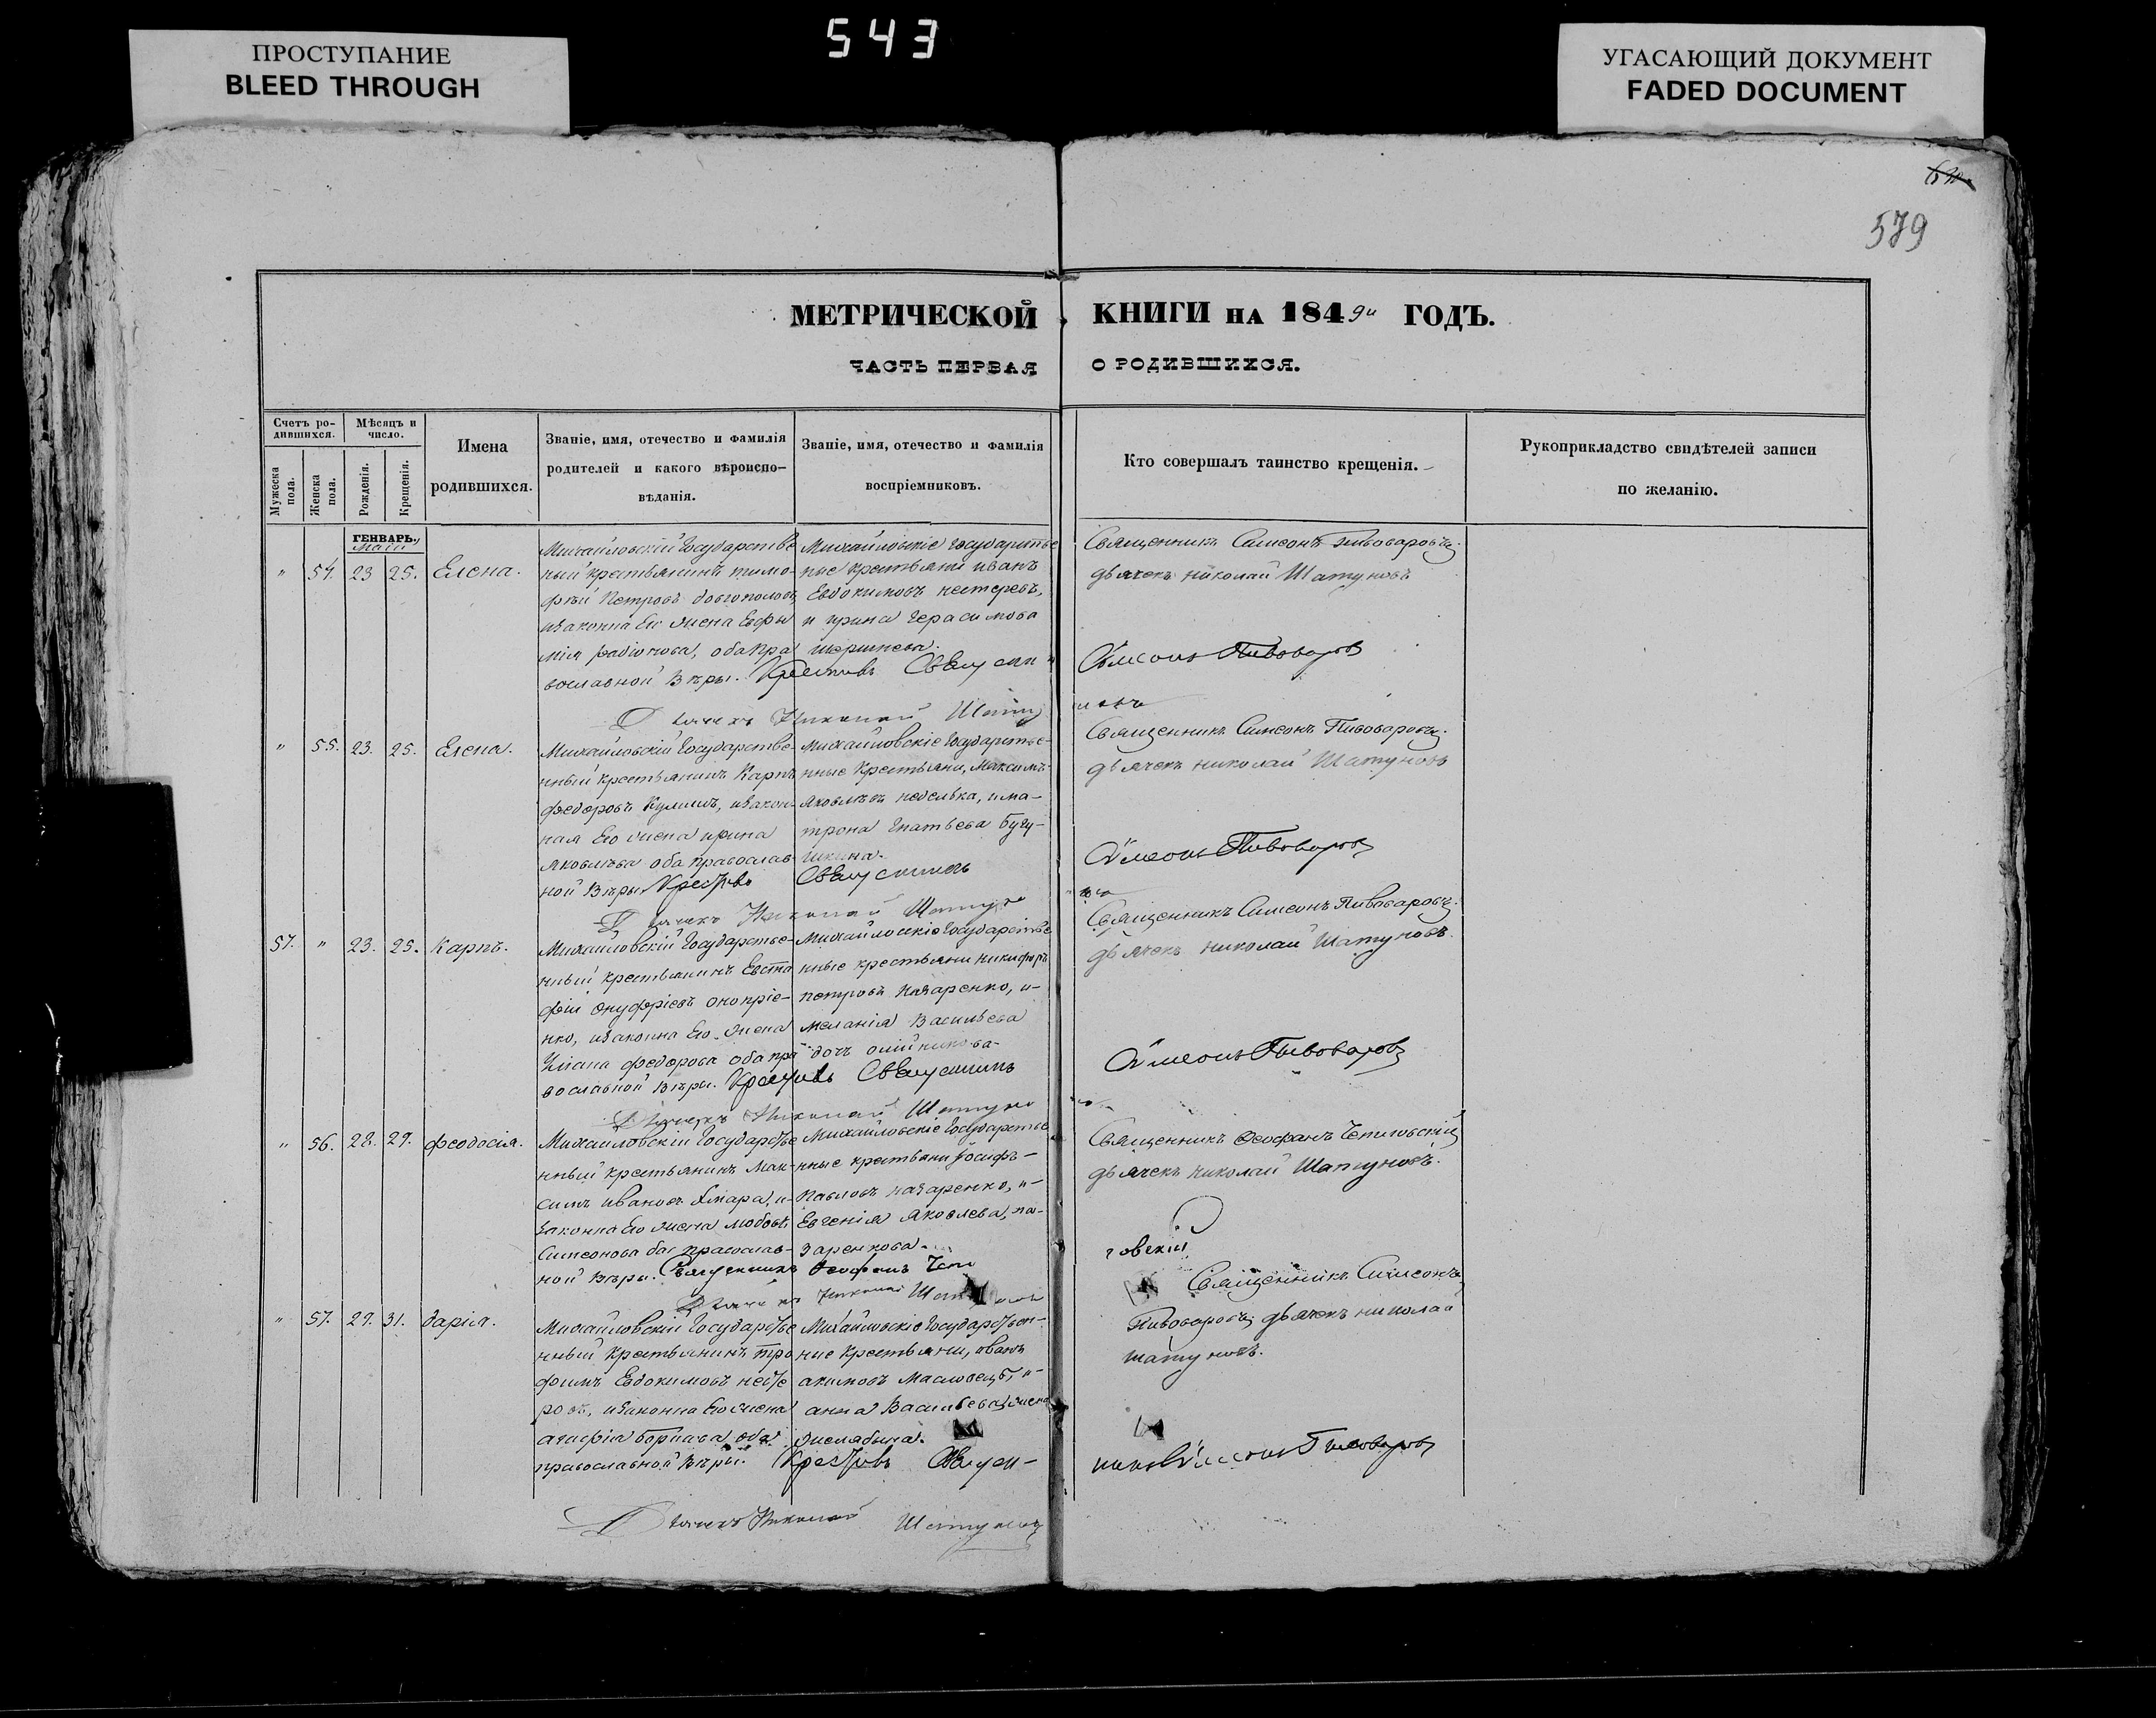 543
ПРОСТУПАНИЕ
BLEED THROUGH
УГАСАЮЩИЙ ДОКУМЕНТ
FADED DOCUMENT
579
МЕТРИЧЕСКОЙ КНИГИ НА 1849й ГОДЪ.
ЧАСТЬ ПЕРВАЯ О РОДИВШИХСЯ.
Счетъ ро-
дившихся.
Мужеска
пола.
Женска
пола.
Мѣсяцъ и
число.
Рожденія.
Крещенія.
Имена
родившихся.
Званіе, имя, отечество и фамилія
родителей и какого вѣроиспо-
вѣданія.
Званіе, имя, отечество и фамилія
воспріемниковъ.
Кто совершалъ таинство крещенія.
Рукоприкладство свидѣтелей записи
по желанію.
ГЕНВАРЬ.
" 54. 23 25. Елена.
Михайловскій Государстве
ный крестьянинъ тимо-
фѣй Петровъ довгополовъ,
изаконна Его жена Евфы
мія радіонова, оба пра
вославной Вѣры.
Михайловскіе государстве
ные крестьяни иванъ
Евдокимовъ нестеревъ,
и ирина герасимова
Священникъ Симеонъ Пивоваровъ.
дьячекъ николай Шатуновъ
Крестивъ Священн
Сѵмеонъ Пивоваровъ
Дьячекъ Николай Шату
новъ
" 55. 23. 25. Елена.
Михайловскій Государстве-
нный крестьянинъ Карпъ
федоровъ Кулишъ, изакон-
ная Его жена ирина
яковлѣва оба православ-
ной Вѣры
Михайловскіе Государстве-
нные Крестьяни, Максимъ
яковлѣвъ неделька, има-
трона Гнатьева Бугу-
шкина.
Священникъ Симеонъ Пивоваровъ.
дьячекъ николай Шатуновъ
Крестивъ Священникъ
Сѵмеонъ Пивоваровъ
Дьячекъ Николай Шатуно
57. " 23. 25. Карпъ.
Михайловскій Государстве-
нный крестьянинъ Евста
фій Онуфріевъ онопріе-
нко, изаконна Его жена
федорова оба пра
вославной Вѣры.
Михайловскіе Государстве
нные крестьяни никифоръ
петровъ Назаренко, и-
меланія Васильева
Священникъ Симеонъ Пивоваровъ.
дьячекъ николай Шатуновъ.
Крестивъ Священникъ
Сѵмеонъ Пивоваровъ
Дьячекъ Николай Шатуно
" 56. 28. 29. феодосія.
Михайловскій Государстве
нный крестьянинъ Мак-
симъ ивановъ и-
законна Его жена любовь
Симеонова оба православ-
ной Вѣры.
Михайловскіе Государстве
нные крестьяни Іосифъ-
Павловъ назаренко, и-
Евгенія яковлева, на-
заренкова.
Священникъ Ѳеофанъ
дьячекъ николай Шатуновъ.
Священникъ Ѳеофанъ
говскій
Дьячекъ Николай
" 57. 29. 31. дарія.
Михайловскій Государстве
нный крестьянинъ тро
фимъ Евдокимовъ несте
ровъ, изаконна Его жена
агафіа борисова оба
православной Вѣры.
Михайловскіе Государствен-
ные Крестьяни, иванъ
акимовъ Масловецъ, и-
анна Васильева жена
Священникъ Симеонъ
Пивоваровъ, дьячекъ николай
шатуновъ.
Крестивъ Священ-
никъ Сѵмеонъ Пивоваровъ
Дьячекъ Николай Шатуновъ